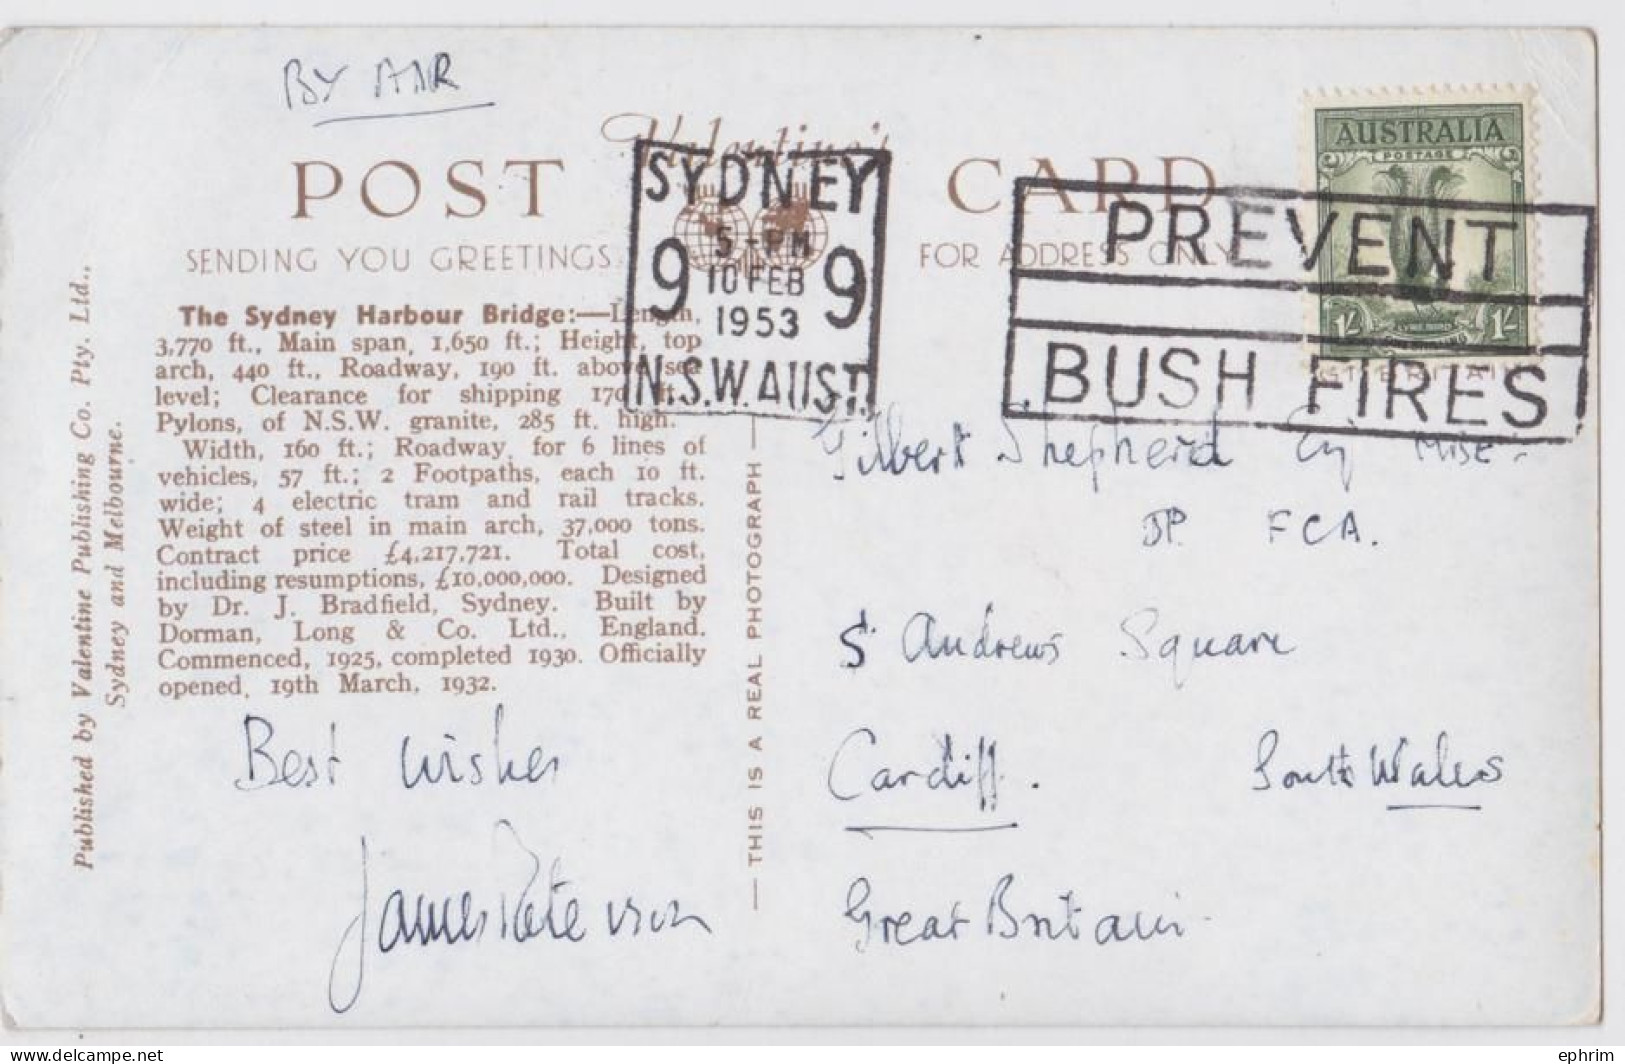 BY AIR
Valentine's
POST CARD
SENDING YOU GREETINGS
FOR ADDRESS ONLY
SYDNEY
9 5-PM 9
10 FEB
1953
N.S.W. AUST.
PREVENT
BUSH FIRES
AUSTRALIA
POSTAGE
1/- 1/-
The Sydney Harbour Bridge:—Length,
3,770 ft., Main span, 1,650 ft.; Height, top
arch, 440 ft., Roadway, 190 ft. above sea
level; Clearance for shipping 170 ft.
Pylons, of N.S.W. granite, 285 ft. high.
Width, 160 ft.; Roadway, for 6 lines of
vehicles, 57 ft.; 2 Footpaths, each 10 ft.
wide; 4 electric tram and rail tracks.
Weight of steel in main arch, 37,000 tons.
Contract price £4,217,721. Total cost,
including resumptions, £10,000,000. Designed
by Dr. J. Bradfield, Sydney. Built by
Dorman, Long & Co. Ltd., England.
Commenced, 1925, completed 1930. Officially
opened, 19th March, 1932.
Published by Valentine Publishing Co. Pty. Ltd.,
Sydney and Melbourne.
—THIS IS A REAL PHOTOGRAPH—
Best wishes
James Paterson
Gilbert Shepherd Esq
JP. FCA.
St Andrews Square
Cardiff. South Wales
Great Britain
ephrim